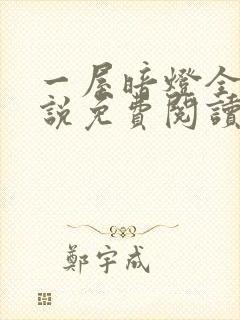 一屋暗燈全
說免費閱讀
鄭宇成